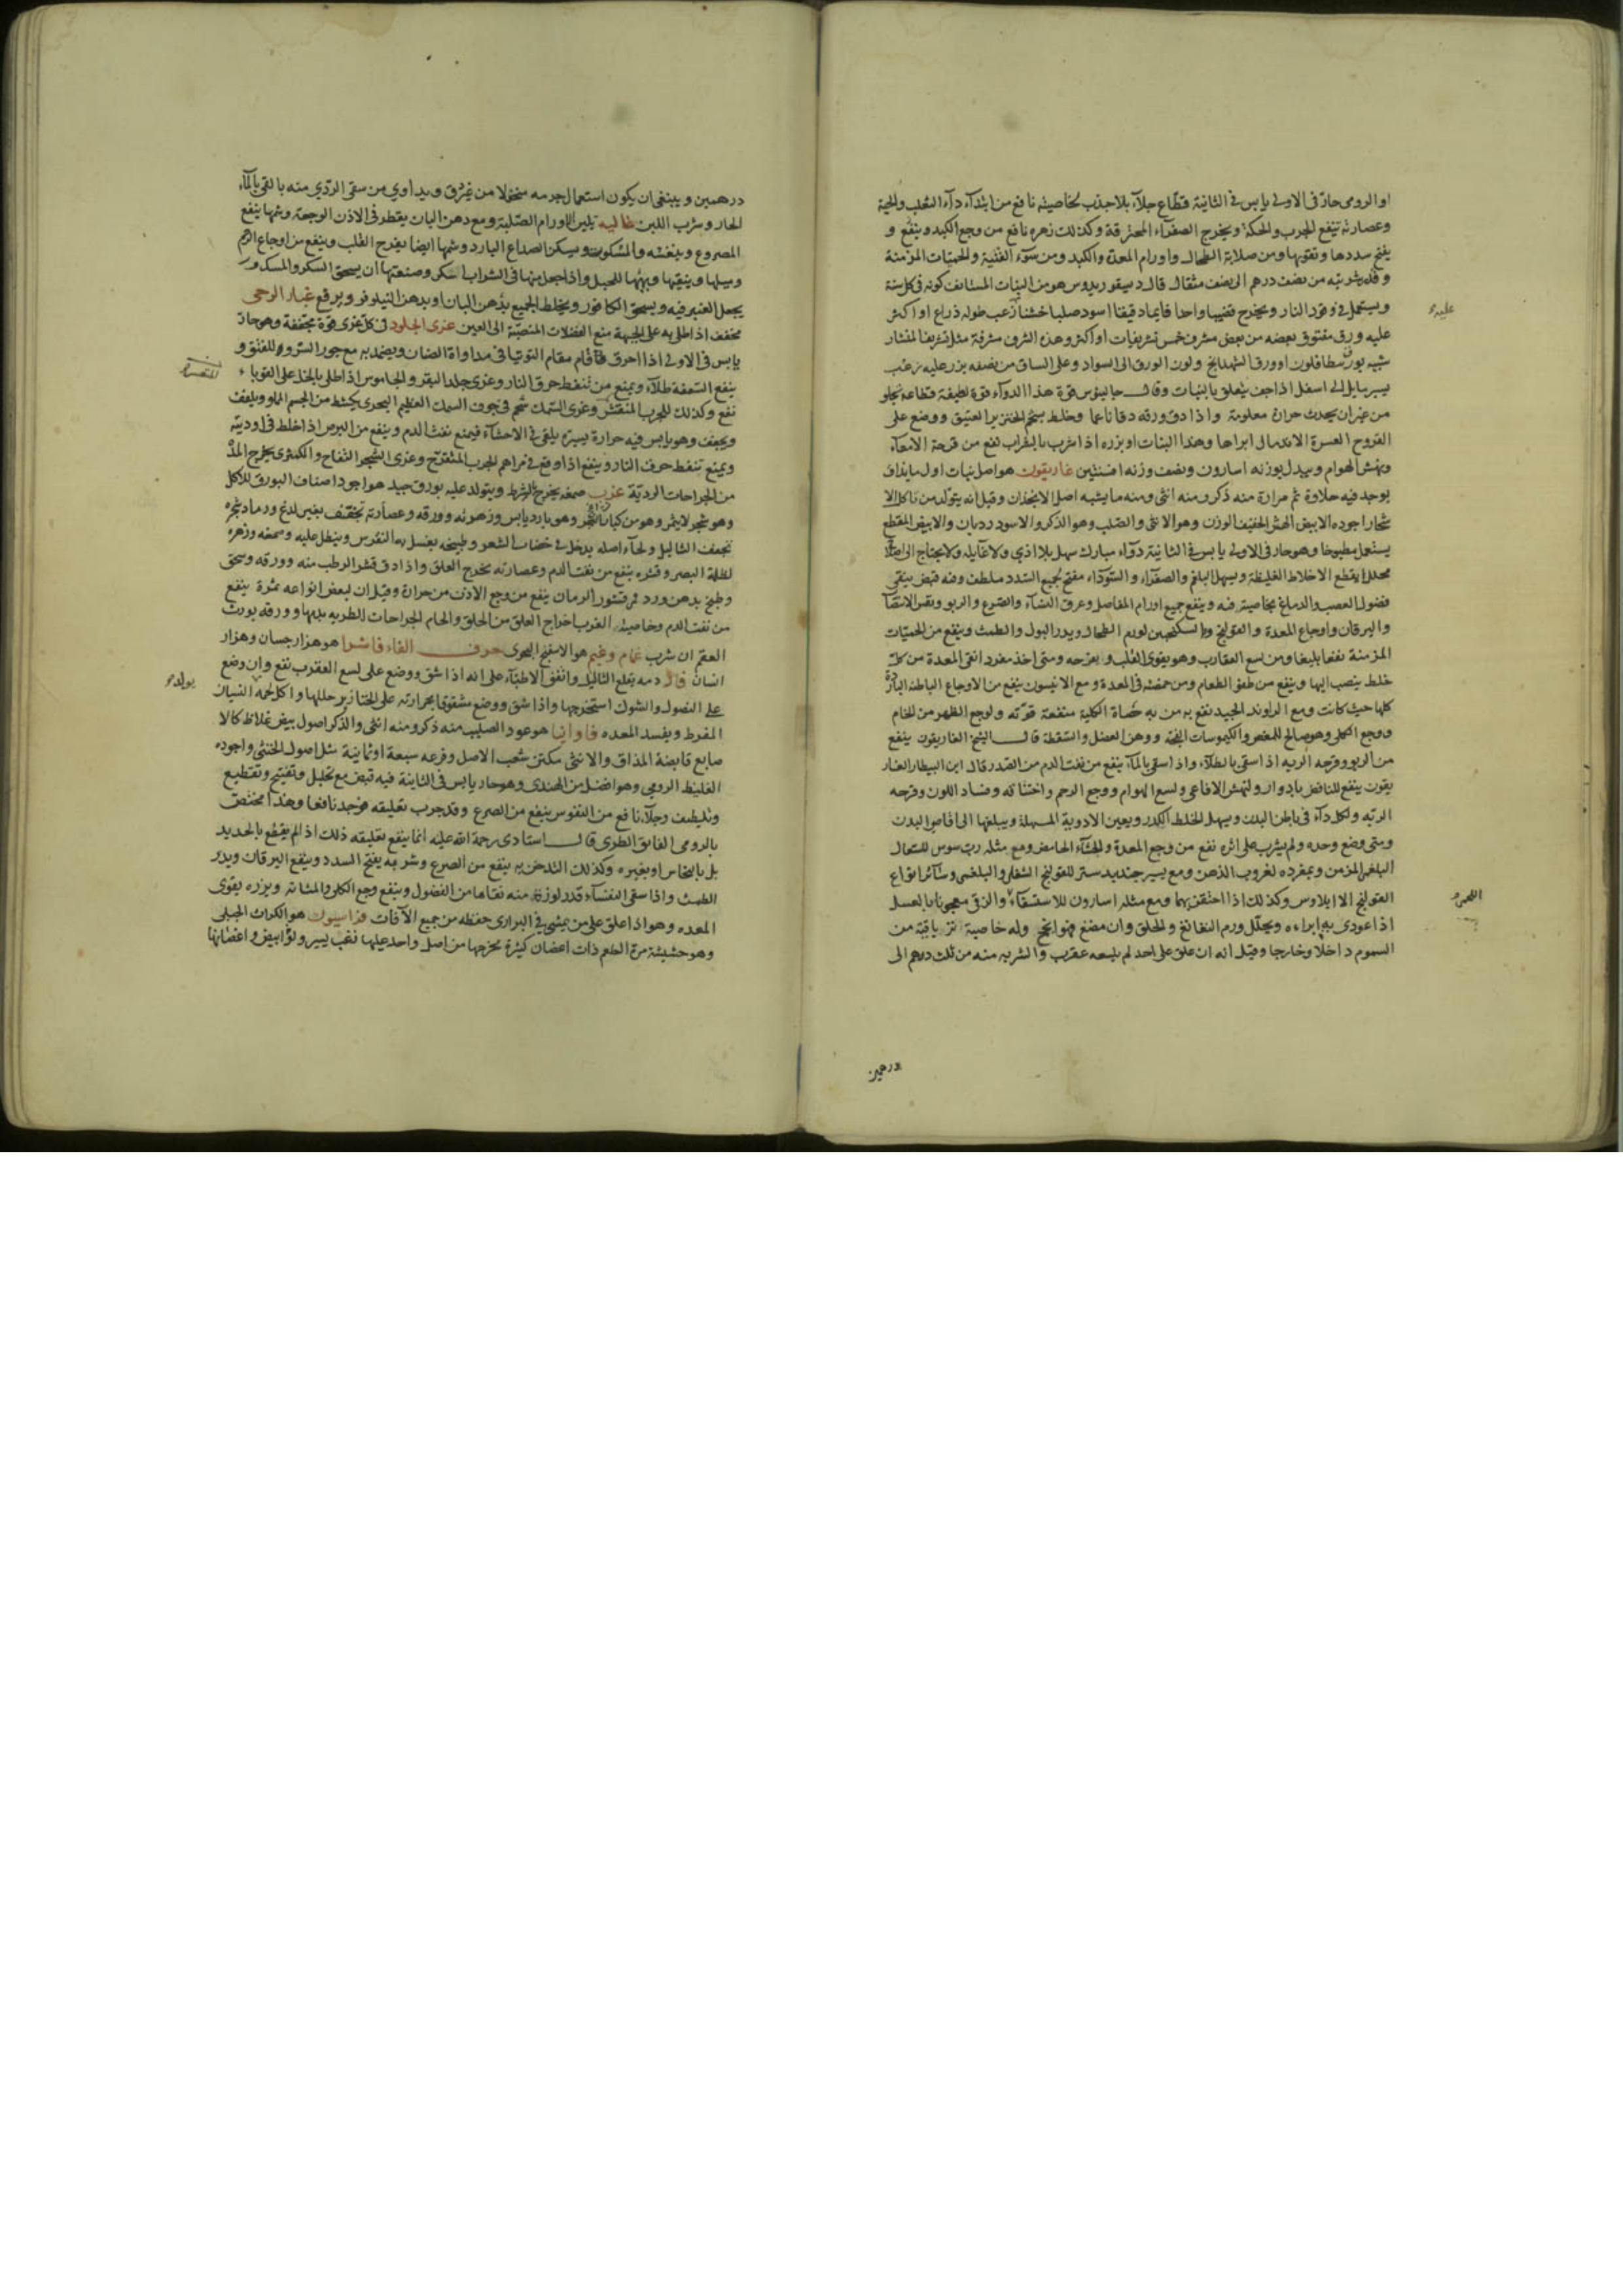 او الرومى حادّ فى الاولى يابس فى الثانية قطّاع جلّآء بلا جذب لخاصيته نافع من ابتدآء دآء الثعلب والحية
وعصارته تنفع الجرب والحكة ويخرج الصفرآء المحترقة وكذلك زهره نافع من وجع الكبد وينفع و
يفتح سددها وتقويها ومن صلابة الطحال واورام المعدة والكبد ومن سوء القنية والحميات المزمنة
وقدر شربته من نصف درهم الى نصف مثقال قال ديسقوريدوس هو من النبات المستانف كونه فى كل سنة
ويستعمل فى وقود النار ويخرج قضيبا واحدا قايما دقيقا اسود صلبا خشنا ازغب طوله ذراع او اكثر
عليه ورق متفرق بعضه من بعض مشرف خمس تشريفات او اكثر وهذه الشرف مشرفة مثل تشريف المنشار
شبيه بورق بنطافلون او ورق الشهدانج ولون الورق الى السواد وعلى الساق من نصفه بزر عليه زغب
يسير مايل الى اسفل اذا جف يتعلق بالثياب وقال جالينوس قوة هذا الدوآء قوة لطيفة قطاعة تجلو
من غير ان يحدث حرارة معلومة واذا دق ورقه دقا ناعما وخلط بشحم الخنزير العتيق ووضع على
القروح العسرة الاندمال ابراها وهذا النبات او بزره اذا شرب بالشراب نفع من قرحة الامعآء
ونهش الهوام وبدل بوزنه اسارون ونصف وزنه افسنتين غاريقون هو اصل نبات اول ما يذاق
يوجد فيه حلاوة ثم مرارة منه ذكر ومنه انثى ومنه ما يشبه اصل الانجذان وقيل انه يتولد من تاكل الا
شجار اجوده الابيض الهش الخفيف الوزن وهو الانثى والصلب وهو الذكر والاسود رديان والابيض المقطع
يستعمل مطبوخا وهو حار فى الاولى يابس فى الثانية دوآء مبارك سهل بلا اذى ولا غايلة ولا يحتاج الى اصلاح
محلل يقطع الاخلاط الغليظة ويسهل البلغم والصفرآء والسودآء مفتح لجميع السدد ملطف وفيه قبض ينقى
فضول العصب والدماغ بخاصية فيه وينفع جميع اورام المفاصل وعرق النسآء والصرع والربو ونفس الانتصاب
واليرقان واوجاع المعدة والقولنج وبالسكنجبين لورم الطحال ويدر البول والطمث وينفع من الحميّات
المزمنة نفعا بليغا ومن لسع العقارب وهو يقوى القلب ويفرحه ومتى اخذ مفردا نقى المعدة من كل
خلط ينصب اليها وينفع من طفو الطعام ومن حمضه فى المعدة ومع الانيسون ينفع من الاوجاع الباطنة الباردة
كلها حيث كانت ومع الراوند الجيد نفع به من به حصاة الكلية منفعة قوية ولوجع الظهر من الخام
ووجع الكلى وهو صالح للمغص والكيموسات الفجة ووهن العضل والسقطة قال الشيخ الغاريقون ينفع
من الربو وقرحة الرية اذا سقى بالطلآء واذا سقى بالمآء ينفع من نفث الدم من الصدر قال ابن البيطار الغار
يقون ينفع للنافض بادوار ولنهش الافاعى ولسع الهوام ووجع الرحم واختناقه وفساد اللون وقرحة
الرية ولكل دآء فى باطن البدن ويسهل الخلط الكدر ويعين الادوية المسهلة ويبلغها الى اقاصى البدن
ومتى وضع وحده ولم يشرب على اثره نفع من وجع المعدة والجشآء الحامض ومع مثله رب سوس للسعال
البلغمى المزمن وبمفرده لغروب الذهن ومع يسير جندبيدستر للقولنج الثفلى والبلغمى وسآئر انواع
القولنج الا ايلاوس وكذلك اذا احتقن بهما ومع مثله اسارون للاستسقآء والزقى معجونا بالعسل
اذا عودى به ابراه ويحلل ورم النغانغ والحلق وان مضغ فهو انجح وله خاصية ترياقية من
السموم داخلا وخارجا وقيل انه ان علق على احد لم يلسعه عقرب والشربه منه من ثلث درهم الى
درهمين
درهمين وينبغى ان يكون استعمال جرمه منخولا من غير دق ويداوى من سقى الردى منه بالقى بالمآء
الحار وشرب اللبن غاليه تلين الاورام الصلبة ومع دهن البان يقطر فى الاذن الوجعة وشمها ينفع
المصروع وينعشه والمسكوت ويسكن الصداع البارد وشمها ايضا يفرح القلب وينفع من اوجاع الرحم
وميلها وينقيها ويهيها للحبل واذا جعل منها فى الشراب اسكر وصنعتها ان يسحق السكر والمسك و
يجعل العنبر فيه ويسحق الكافور ويخلط الجميع بدهن البان او بدهن النيلوفر ويرفع غبار الرحى
مجفف اذا طلى به على الجبهة منع الفضلات المنصبّة الى العين غرى الجلود فى كل غرى قوة مجففة وهو حار
يابس فى الاولى اذا احرق قام مقام التوتيا فى مداواة الضان ويضمد به مع جوز السرو للفتق و
ينفع السعفة طلآء ويمنع من تنفط حرق النار وغرى جلد البقر والجاموس اذا طلى بالخل على القوباء
نفع وكذلك للجرب المتقشر وغرى السمك شحم فى جوف السمك العظيم البحرى يكشط من الجسم الماو ويلفف
ويجفف وهو يابس فيه حرارة يسيرة يلقى فى الاحشآء فيمنع نفث الدم وينفع من البرص اذا خلط فى ادويته
ويمنع تنفط حرق النار وينفع اذا وقع فى مراهم الجرب المتقرح وغرى الشجر التفاح والكمثرى يخرج المدّ
من الجراحات الردية غرب صمغه يخرج بالشرط ويتولد عليه بورق جيد هو اجود اصناف البورق للاكل
وهو شجر لا يثمر وهو من كبار الشجر وهو بارد يابس وزهرته وورقه وعصارته تجفف بغير لذع ورماد شجره
تجفف الثاليل ولحآء اصله يدخل فى خضاب الشعر وطبيخه يغسل به النقرس وينطل عليه وصمغه وزهره
لظلمة البصر وقشره ينفع من نفث الدم وعصارته تخرج العلق واذا دق قشر الرطب منه وورقه وسحق
وطبخ بدهن ورد فى قشور الرمان ينفع من وجع الاذن من حرارة وقيل ان لبعض انواعه ثمرة ينفع
من نفث الدم وخاصية الغرب اخراج العلق من الحلق والحام الجراحات الطريه بدمها وورقه يورث
العقم ان شرب غمام وغيم هو الاسفنج البحرى حرف الفاء فاشرا هو هزار جسان وهزار
انسان قال دمه يقلع الثاليل واتفق الاطبآء على انه اذا شق ووضع على لسع العقرب نفع وان وضع
على النصول والشوك استخرجها واذا شق ووضع مشقوقا بحرارته على الخنازير حللها واكل لحمه النسيان
المفرط ويفسد المعده فاوانيا هو عود الصليب منه ذكر ومنه انثى والذكر اصول بيض غلاظ كالا
صابع قابضة المذاق والانثى مكثر شعب الاصل وفرعه سبعة او ثمانية مثل اصول الخنثى واجوده
الغليظ الرومى وهو افضل من الهندى وهو حار يابس فى الثانية فيه قبض مع تحليل وتفتيح وتقطيع
وتلطيف وجلآء نافع من النقرس ينفع من الصرع وقد جرب تعليقه فوجد نافعا وهذا مختص
بالرومى الفايق الطرى قال استادى رحمة الله عليه انما ينفع تعليقه ذلك اذا لم يقطع بالحديد
بل بالنحاس او بغيره وكذلك التدخن به ينفع من الصرع وشربه يفتح السدد وينفع اليرقان ويدر
الطمث واذا سقى النفسآء قدر لوزة منه نقاها من الفضول وينفع وجع الكلى والمثانة وبزره يقوى
المعده وهو اذا علق على من يمشى فى البرارى حفظه من جميع الآفات فراسيون هو الكراث الجبلى
وهو حشيشة مرة الطعم ذات اغصان كثيرة مخرجها من اصل واحد عليها زغب يسير ولونها ابيض واغصانها